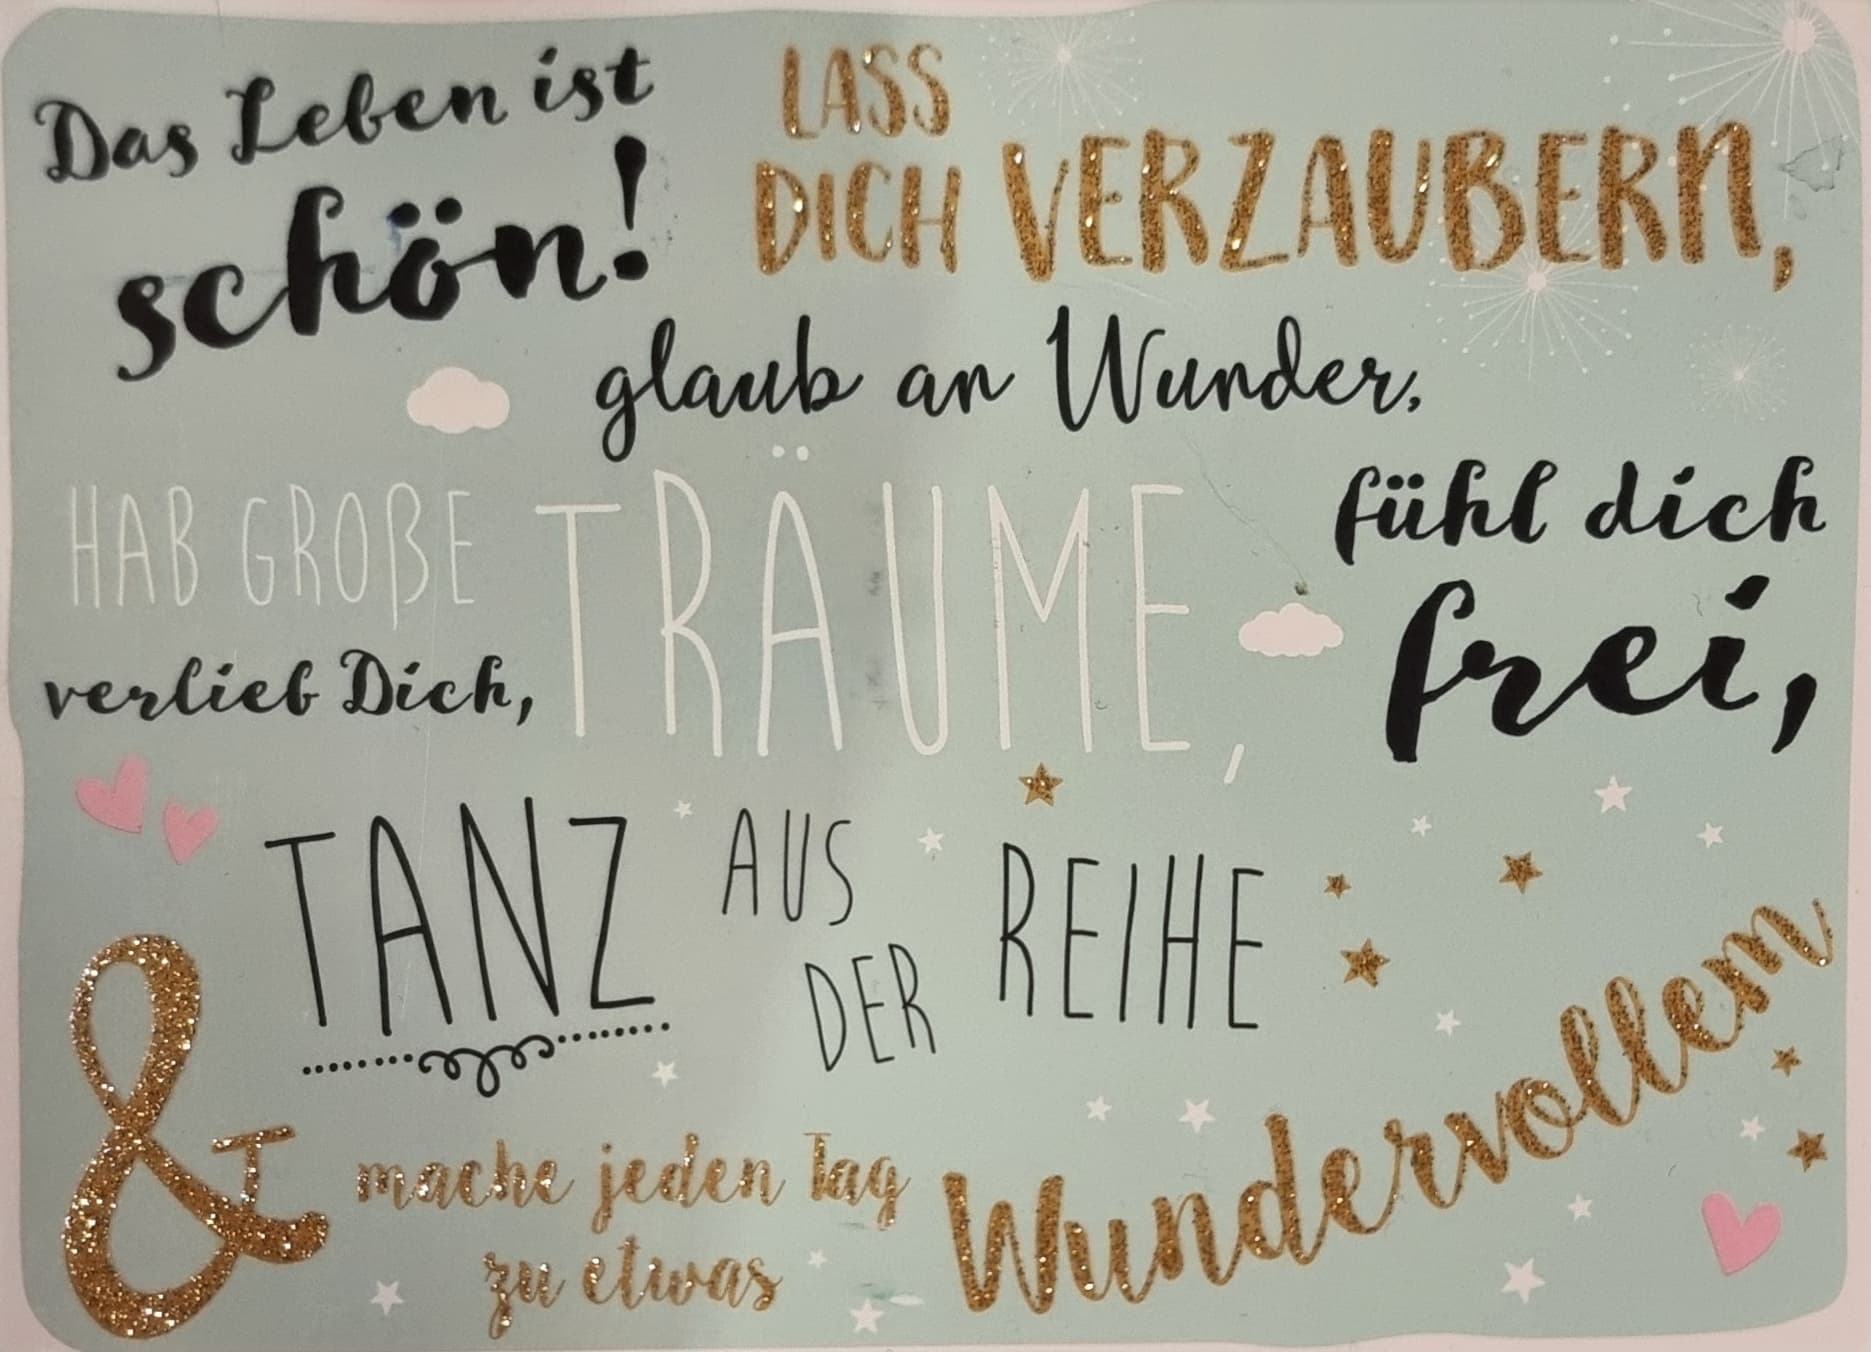 Das Leben ist
schön!
LASS
DICH VERZAUBERN,
glaub an Wunder,
HAB GROẞE TRÄUME,
fühl dich
frei,
verlieb Dich,
TANZ AUS
DER REIHE
& mache jeden Tag
zu etwas Wundervollem